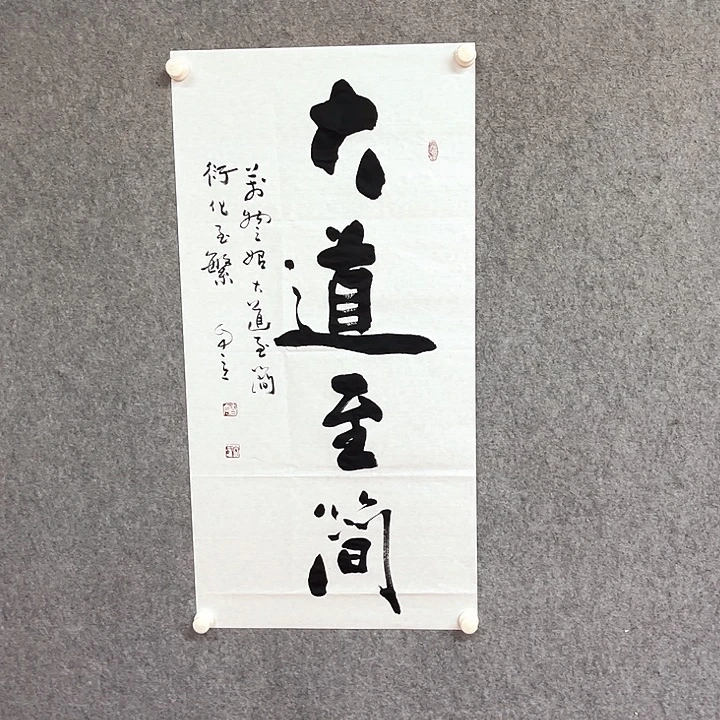 大道至简
萬物之始大道至简
衍化至繁